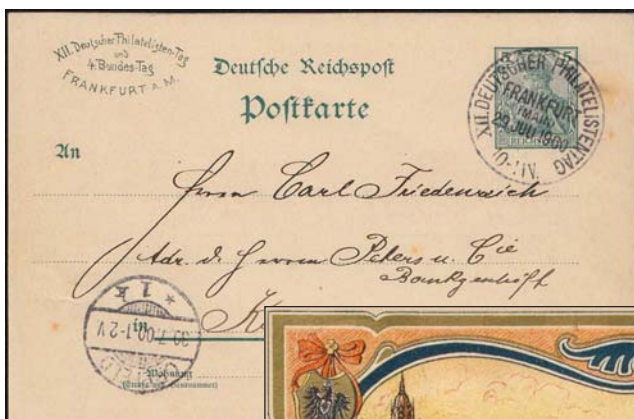 XII. Deutscher Philatelisten-Tag
und
4. Bundes-Tag
FRANKFURT A. M.
Deutsche Reichspost
Postkarte
XII. DEUTSCHER PHILATELISTENTAG
FRANKFURT
(MAIN)
29 JULI 1900
10-11V.
An
Herrn Carl Friedenreich
Adr. d. Herren Peters u. Cie
Bankgeschäft
in
30.7.00.1-2V
* 1 k
Wohnung